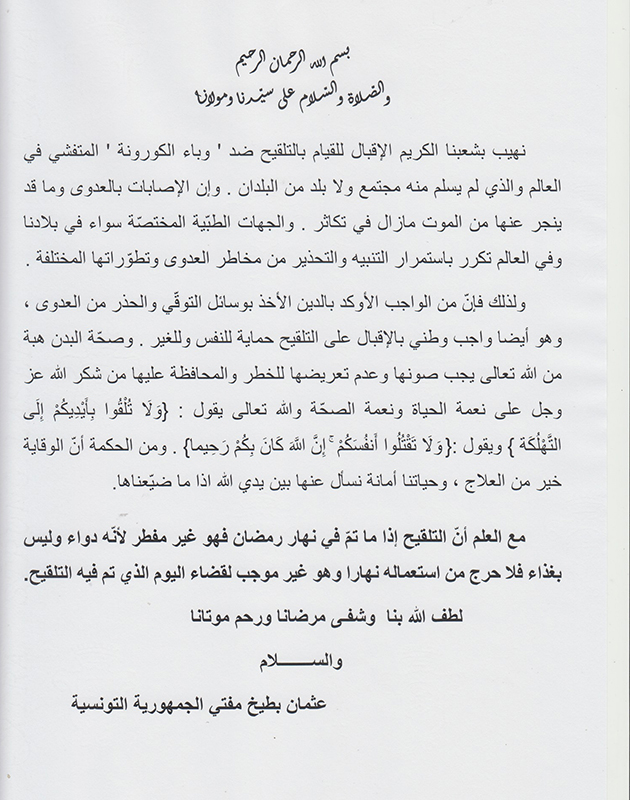 بسم الله الرحمان الرحيم
والصلاة والسّلام على سيّدنا ومولانا
نهيب بشعبنا الكريم الإقبال للقيام بالتلقيح ضد ' وباء الكورونة ' المتفشي في
العالم والذي لم يسلم منه مجتمع ولا بلد من البلدان . وإن الإصابات بالعدوى وما قد
ينجر عنها من الموت مازال في تكاثر . والجهات الطبّية المختصّة سواء في بلادنا
وفي العالم تكرر باستمرار التنبيه والتحذير من مخاطر العدوى وتطوّراتها المختلفة .
ولذلك فإنّ من الواجب الأوكد بالدين الأخذ بوسائل التوقّي والحذر من العدوى ،
وهو أيضا واجب وطني بالإقبال على التلقيح حماية للنفس وللغير . وصحّة البدن هبة
من الله تعالى يجب صونها وعدم تعريضها للخطر والمحافظة عليها من شكر الله عز
وجل على نعمة الحياة ونعمة الصحّة والله تعالى يقول : {وَلَا تُلْقُوا بِأَيْدِيكُمْ إِلَى
التَّهْلُكَة } ويقول :{وَلَا تَقْتُلُوا أَنفُسَكُمْ ۚ إِنَّ اللَّهَ كَانَ بِكُمْ رَحِيما} . ومن الحكمة أنّ الوقاية
خير من العلاج ، وحياتنا أمانة نسأل عنها بين يدي الله اذا ما ضيّعناها.
مع العلم أنّ التلقيح إذا ما تمّ في نهار رمضان فهو غير مفطر لأنّه دواء وليس
بغذاء فلا حرج من استعماله نهارا وهو غير موجب لقضاء اليوم الذي تم فيه التلقيح.
لطف الله بنا وشفى مرضانا ورحم موتانا
والســــلام
عثمان بطيخ مفتي الجمهورية التونسية